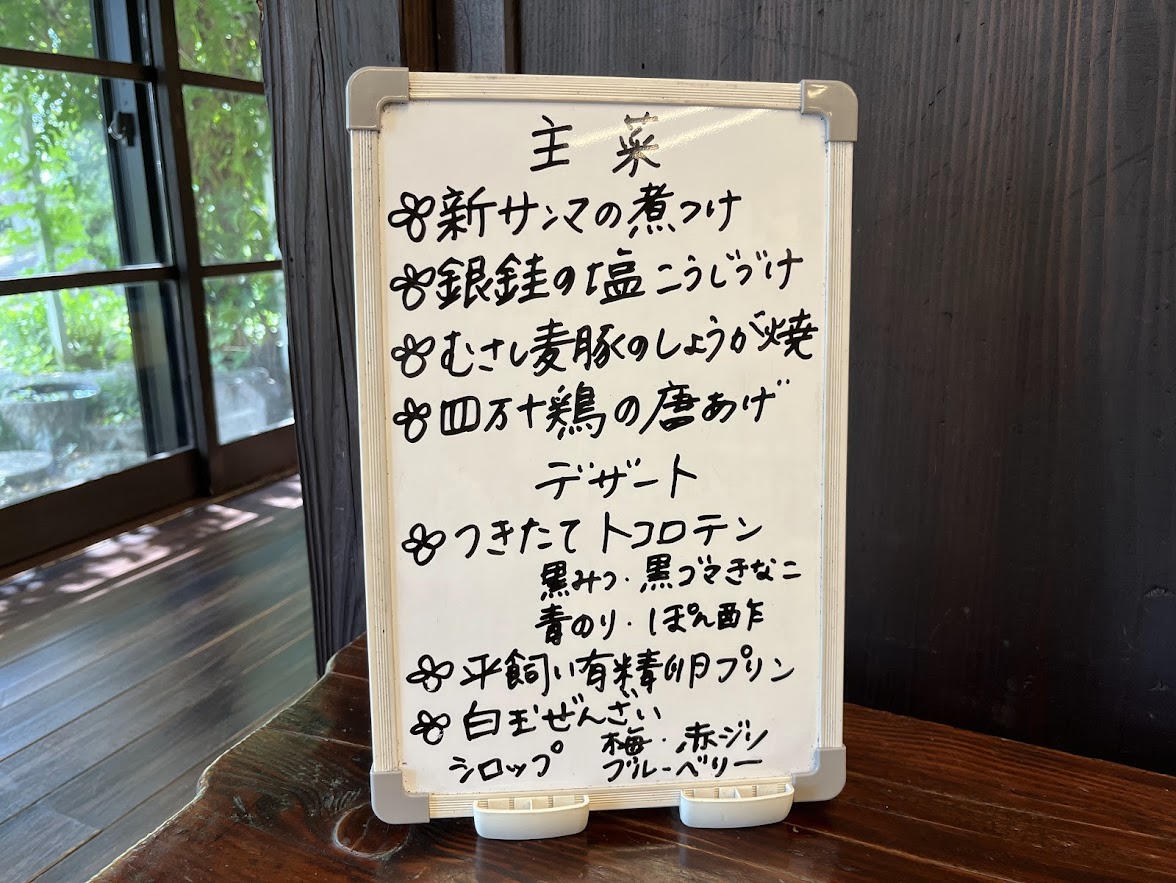 主菜
新サンマの煮つけ
銀鮭の塩こうじづけ
むさし麦豚のしょうが焼
四万十鶏の唐あげ
デザート
つきたてトコロテン
黒みつ・黒ゴマきなこ
青のり・ぽん酢
平飼い有精卵プリン
白玉ぜんざい
シロップ 梅・赤ジソ
ブルーベリー